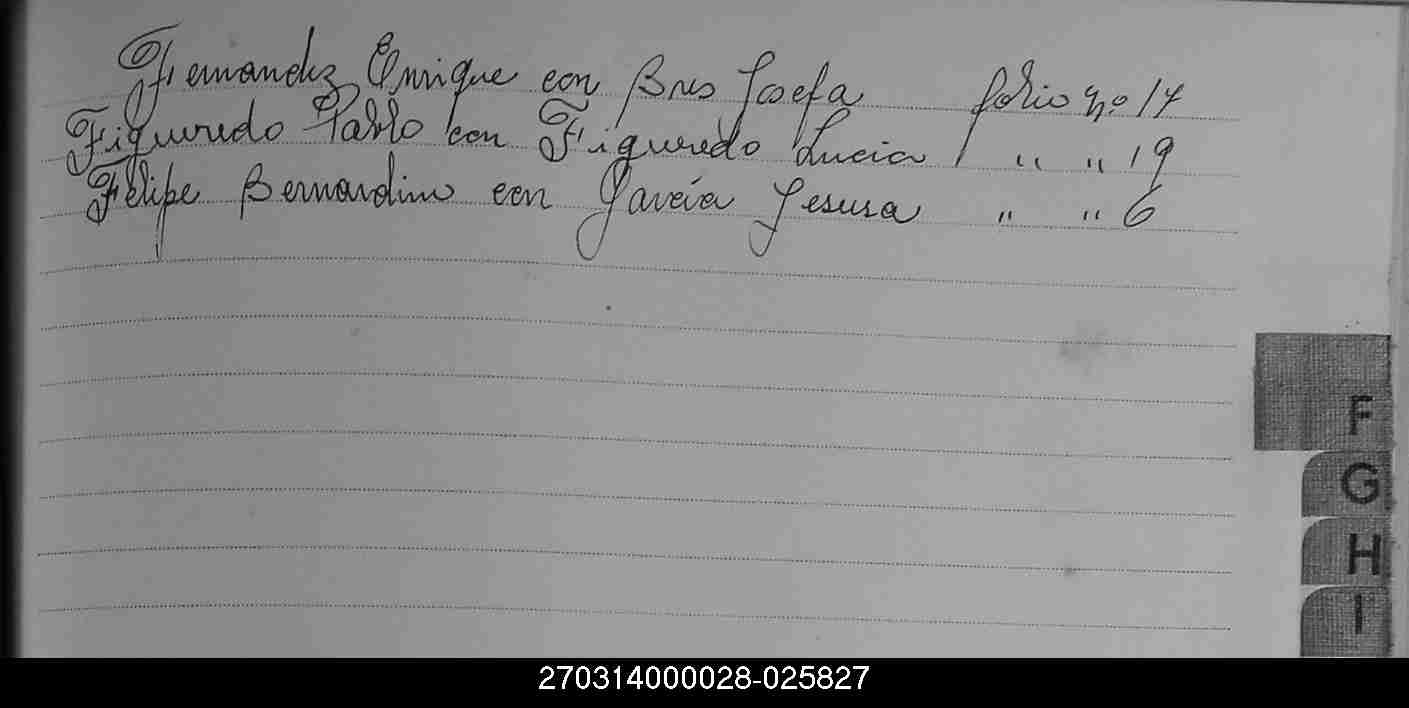 Fernandez Enrique con Bres Josefa folio nº 14
Figueredo Pablo con Figueredo Lucia " " 19
Felipe Bernardino con Garcia Jesusa " " 6
F
G
H
I
270314000028-025827